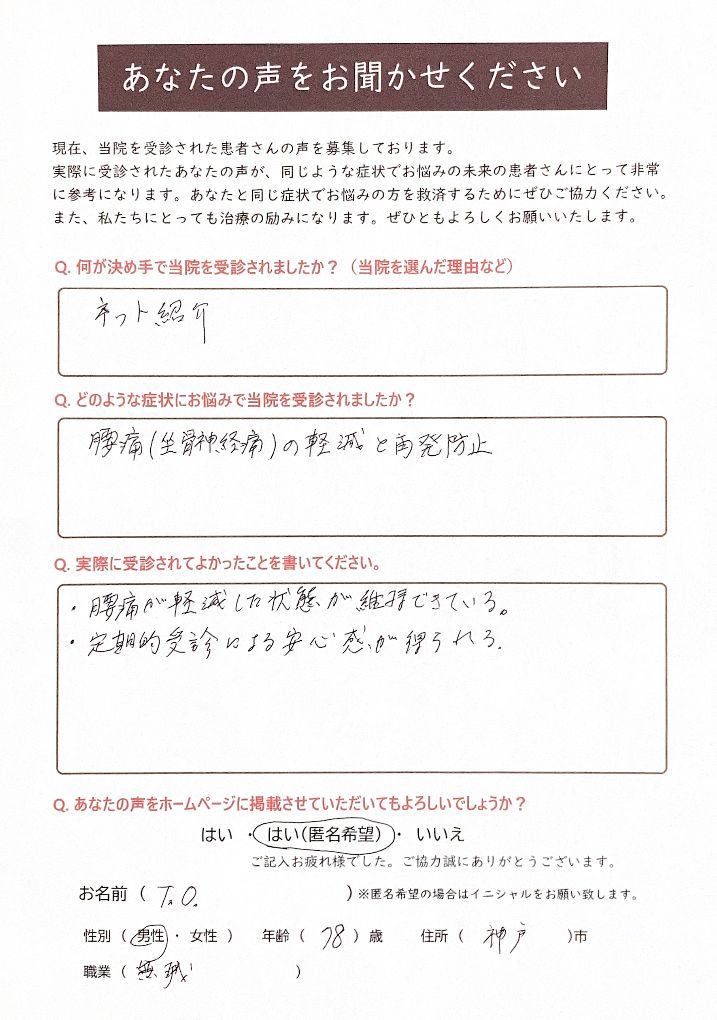 あなたの声をお聞かせください
現在、当院を受診された患者さんの声を募集しております。
実際に受診されたあなたの声が、同じような症状でお悩みの未来の患者さんにとって非常
に参考になります。あなたと同じ症状でお悩みの方を救済するためにぜひご協力ください。
また、私たちにとっても治療の励みになります。ぜひともよろしくお願いいたします。
Q. 何が決め手で当院を受診されましたか？（当院を選んだ理由など）
ネット紹介
Q. どのような症状にお悩みで当院を受診されましたか？
腰痛(坐骨神経痛)の軽減と再発防止
Q. 実際に受診されてよかったことを書いてください。
・腰痛が軽減した状態が維持できている。
・定期的受診による安心感が得られる.
Q. あなたの声をホームページに掲載させていただいてもよろしいでしょうか？
はい ・ はい(匿名希望) ・ いいえ
ご記入お疲れ様でした。ご協力誠にありがとうございます。
お名前 ( T.O. ) ※匿名希望の場合はイニシャルをお願い致します。
性別 ( 男性 ・ 女性 ) 年齢 ( 78 ) 歳 住所 ( 神戸 )市
職業 ( 無職 )